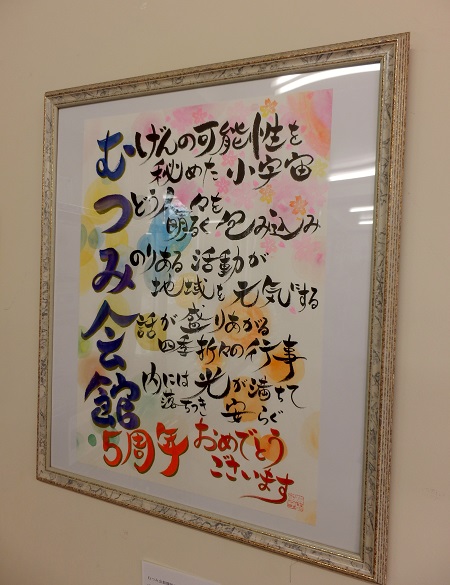 むげんの可能性を
秘めた小宇宙
つどう人々を
明るく包み込み
みのりある活動が
地域を元気にする
会話が盛りあがる
四季折々の行事
館内には光が満ちて
落ちつき安らぐ
5周年おめでとう
ございます